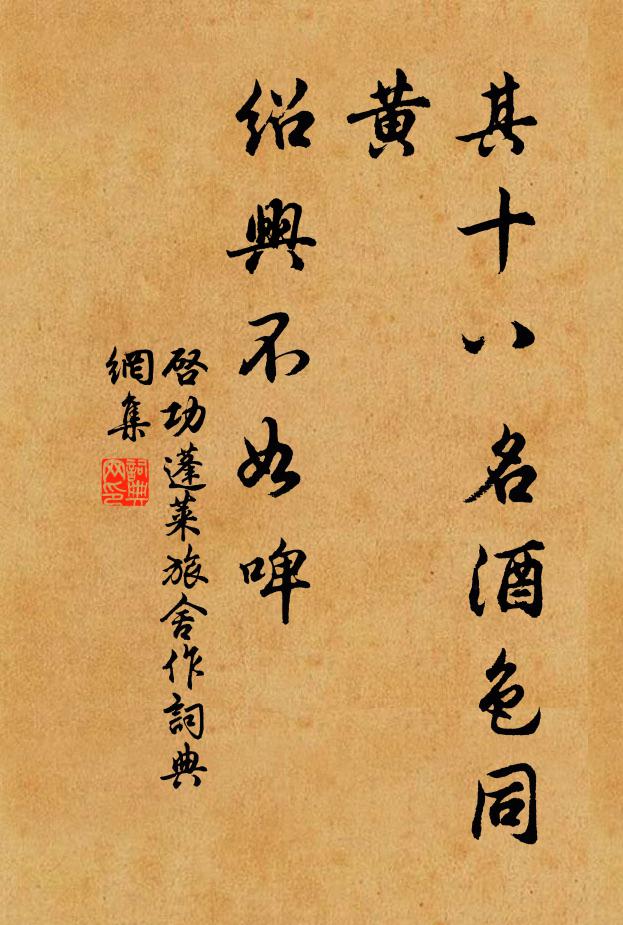 其十八名酒色同
黄
紹興不如啤
啓功蓬莱旅舍作詞典
網集
詞典
网印